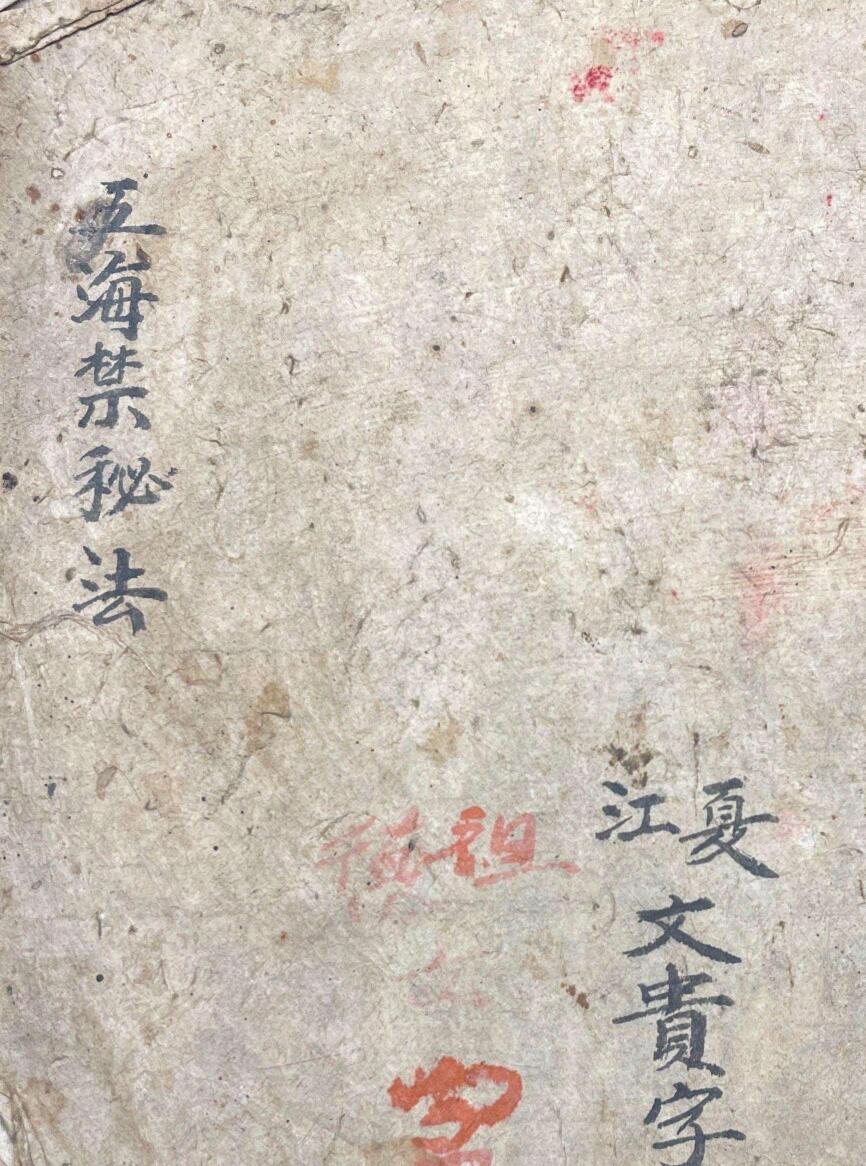 五海禁秘法
江夏
文貴字
祖